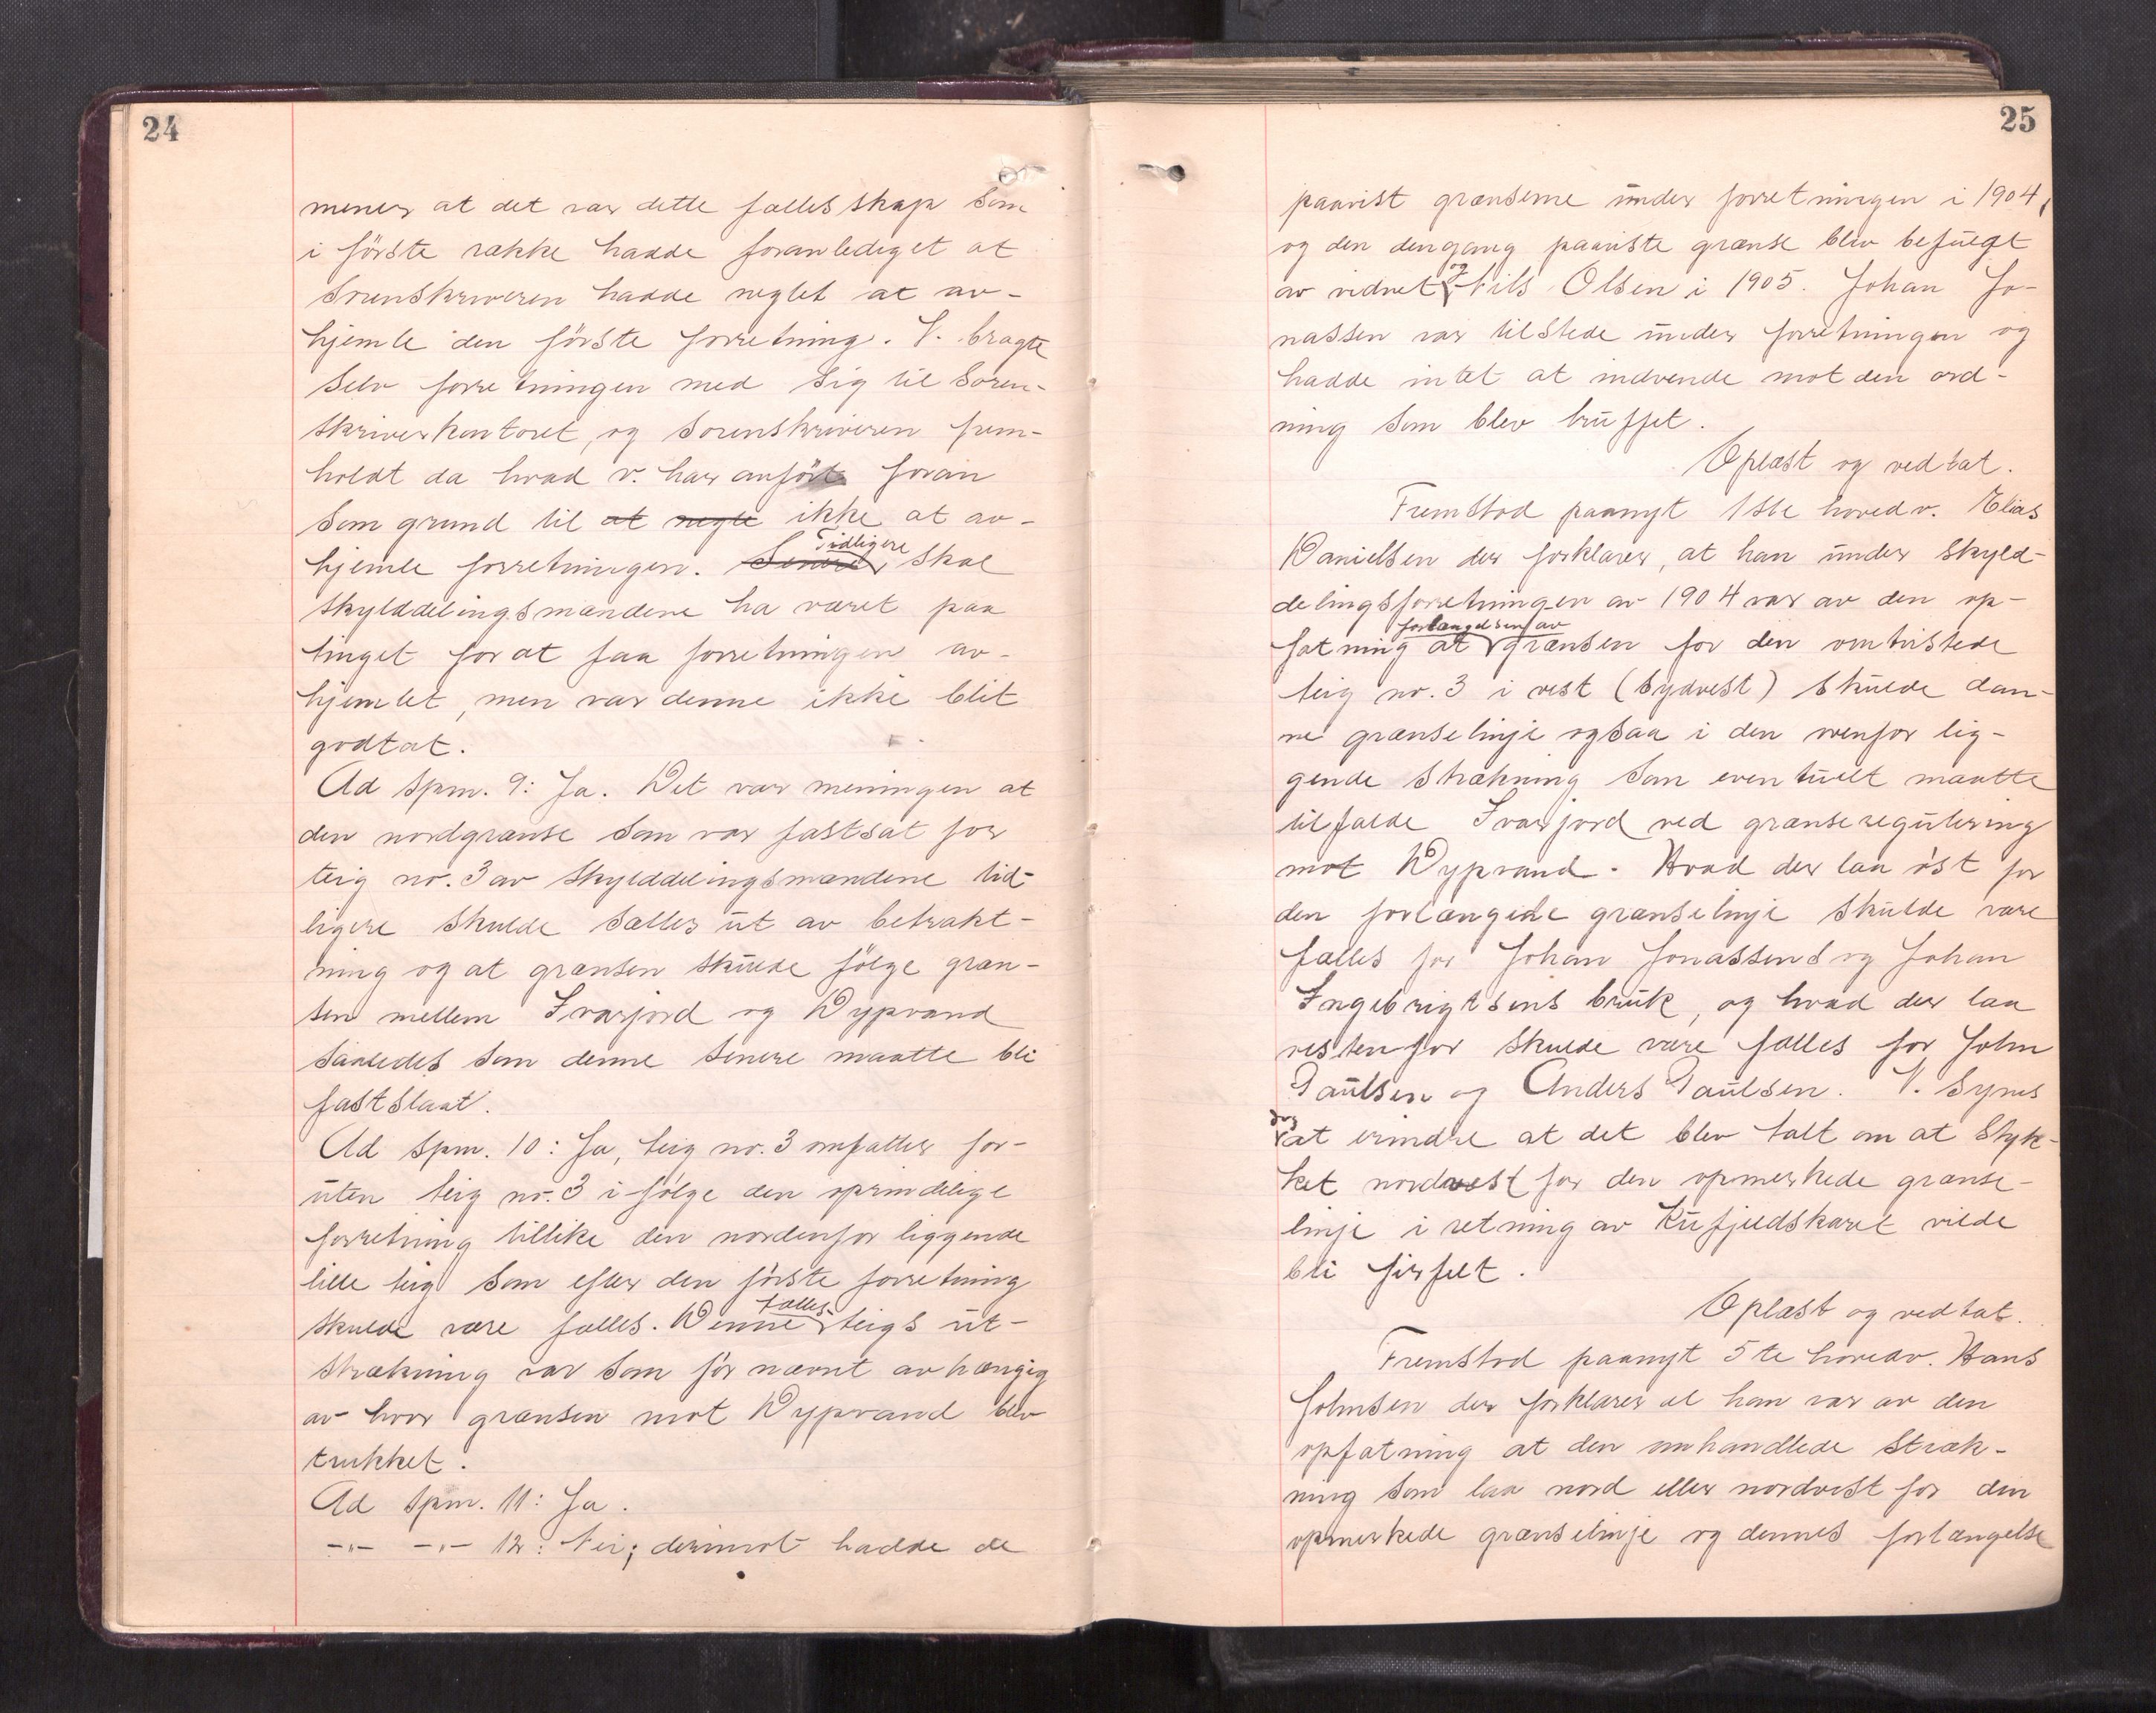 24
mener at det var dette fællesskap som
i første række hadde foranlediget at
sorenskriveren hadde neglet at av-
hjemle den første forretning. V. bragte
selv forretningen med sig til soren-
skriverkontoret, og sorenskriveren frem-
holdt da hvad v. har anført foran
som grund til at negte ikke at av-
hjemle forretningen. Senere Tidligere skal
skylddelingsmændene ha været paa
tinget for at faa forretningen av-
hjemlet, men var denne ikke blit
godtat.
Ad spm. 9: Ja. Det var meningen at
den nordgrænse som var fastsat for
teig no. 3 av skylddelingsmændene tid-
ligere skulde sættes ut av betrakt-
ning og at grænsen skulde følge græn-
sen mellem Ivarjord og Dypvand
saaledes som denne senere maatte bli
fastslaat.
Ad spm. 10: Ja, teig no. 3 omfatter for-
uten teig no. 3 ifølge den oprindelige
forretning tillike den nordenfor liggende
lille teig som efter den første forretning
skulde være fælles. Denne fælles teigs ut-
strækning var som før nævnt avhængig
av hvor grænsen mot Dypvand blev
trukket.
Ad spm. 11: Ja.
-"- -"- 12: Nei; derimot hadde de
25
paavist grænserne under forretningen i 1904,
og den dengang paaviste grænse blev befulgt
av vidnet og Nils Olsen i 1905. Johan Jo-
nassen var tilstede under forretningen og
hadde intet at indvende mot den ord-
ning som blev truffet.
Oplæst og vedtat.
Fremstod paanyt 1ste hovedv. Elias
Danielsen der forklarer, at han under skyld-
delingsforretningen av 1904 var av den op-
fatning at forlængelsen av grænsen for den omtvistede
teig no. 3 i vest (sydvest) skulde dan-
ne grænselinje ogsaa i den ovenfor lig-
gende strækning som eventuelt maatte
tilfalde Ivarjord ved grænseregulering
mot Dypvand. Hvad der laa øst for
den forlængede grænselinje skulde være
fælles for Johan Jonassens og Johan
Ingebrigtsens bruk, og hvad der laa
vestenfor skulde være fælles for John
Paulsen og Anders Paulsen. V. synes
dog at erindre at det blev talt om at styk-
ket nordvest for den opmerkede grænse-
linje i retning av Kufjeldskaret vilde
bli firfelt.
Oplæst og vedtat.
Fremstod paanyt 5te hovedv. Hans
Johnsen der forklarer at han var av den
opfatning at den omhandlede stræk-
ning som laa nord eller nordvest for den
opmerkede grænselinje og dennes forlængelse